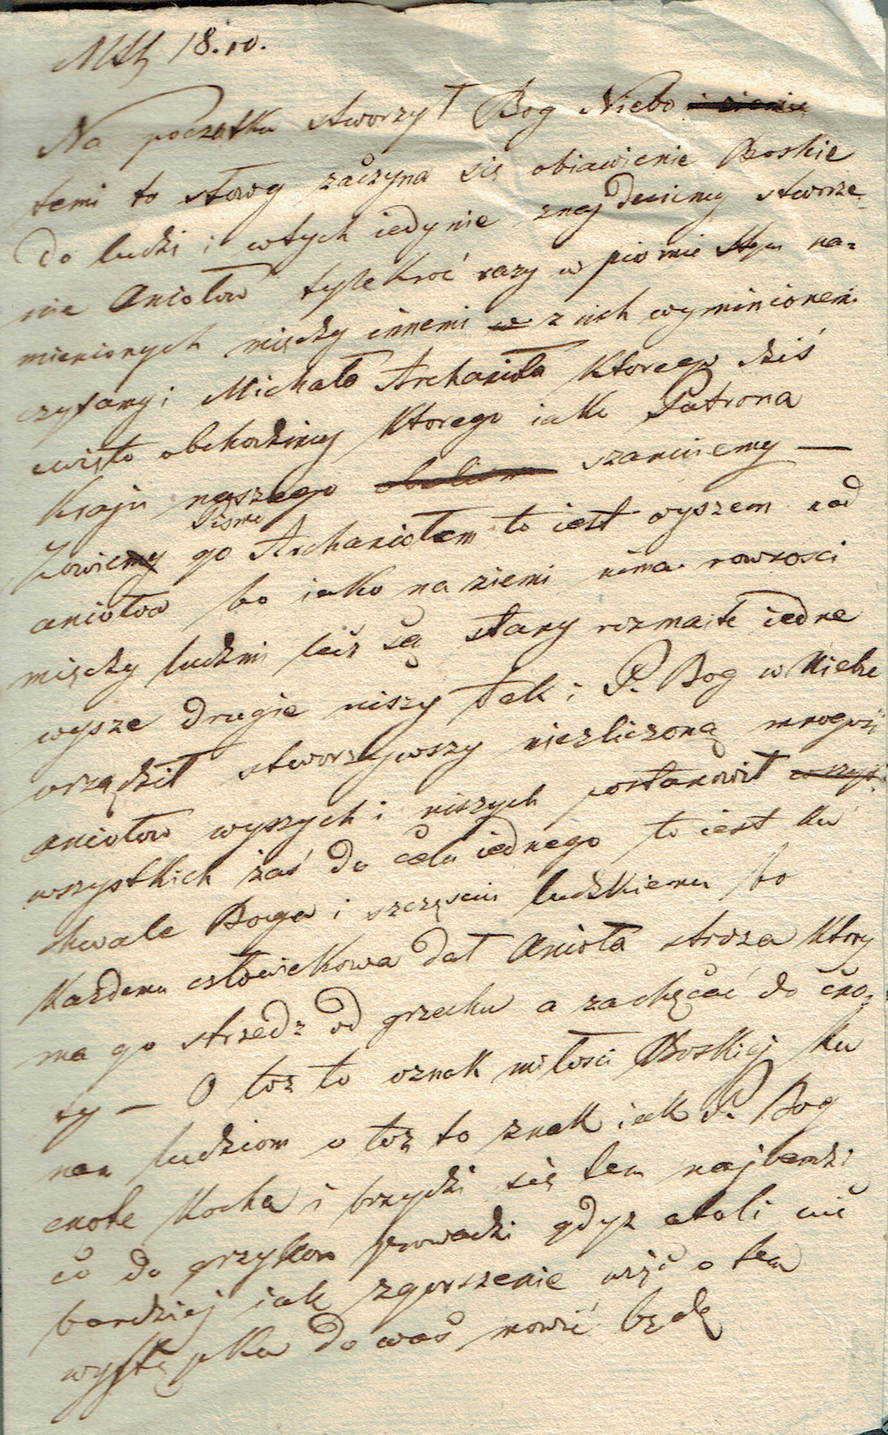 Mtth 18. 10.
Na początku stworzył Bog Niebo i ziemię
temi to słowy zaczyna się obiawienie Boskie
do ludzi i wtych iedynie znajdujemy stworze,
nie Aniołow tylekroć razy w pismie Stym na=
mienionych między innemi w z nich wyminionem
czytamy i Michała Archanioła Ktorego dziś
swięto obchodzimy Ktorego iako Patrona
Kraju naszego szanuiemy —
Pismo
Zowiemy go Archaniołem to iest wyszem nad
aniołow bo iako na ziemi nima rownosci
między ludzmi lecz są stany rozmaite iedne
wysze drugie niszy tak i P. Bog w Niebie
urządził stworzywszy niezliczoną mnogość
Aniołow wyszych i niszych postanowił wszyst
wszystkich zaś do celu iednego to iest ku
chwale Boga i szczęsciu ludzkiemu bo
Kazdemu człowiekowa dał Anioła stroza Ktory
ma go strzedz od grzechu a zachęcać do cno,
ty — O toz to oznak miłosci Boskiej ku
nam ludziom o toż to znak iak P. Bog
cnote Kocha i brzydzi się tem najbardzi
co do grzychow prowadzi gdyz atoli nic
bardziej iak zgorszenie więc o tem
występku do was mowić będę